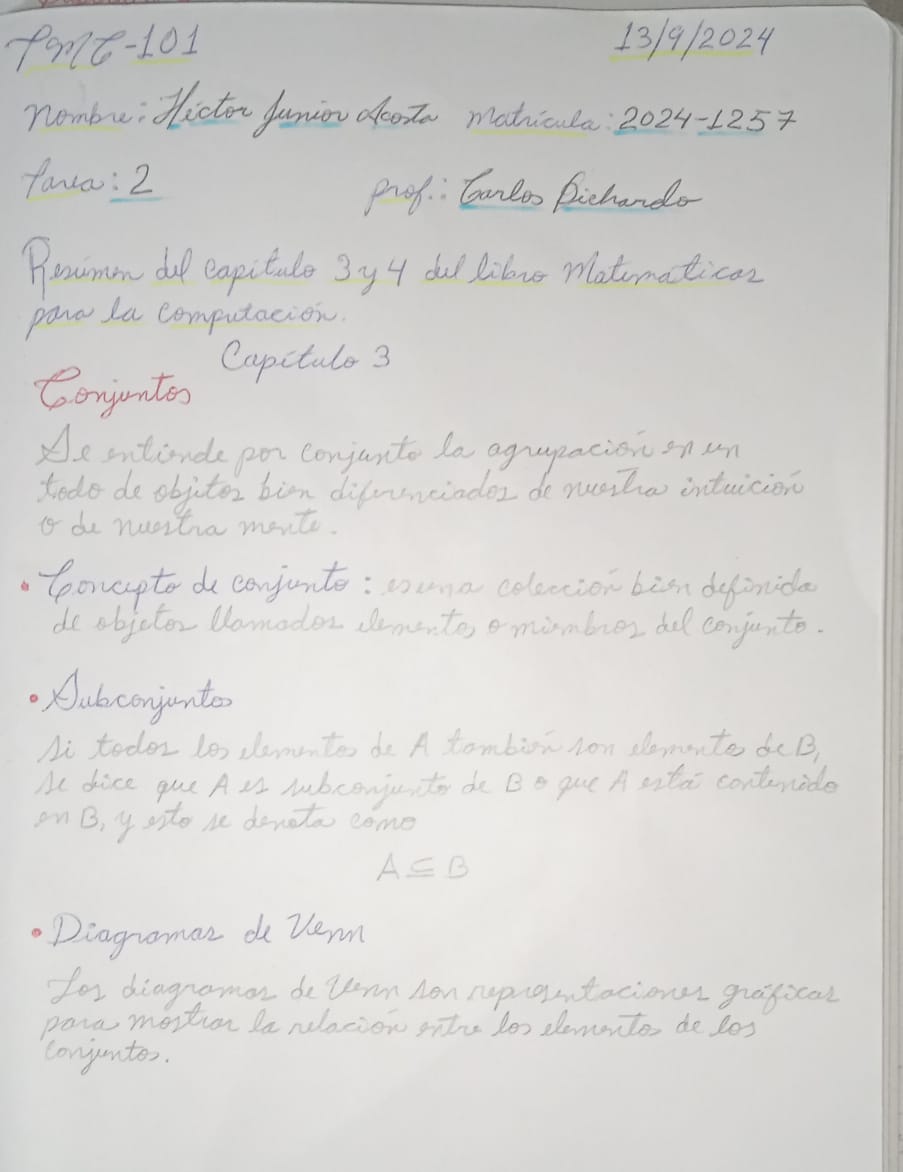 TMC-101 13/9/2024
Nombre: Héctor Junior Acosta Matrícula: 2024-1257
Tarea: 2 prof.: Carlos Pichardo
Resúmen del capítulo 3 y 4 del libro Matematicas
para la computación.
Capítulo 3
Conjuntos
Se entiende por conjunto la agrupación en un
todo de objetos bien diferenciados de nuestra intuición
o de nuestra mente.
• Concepto de conjunto: es una colección bien definida
de objetos llamados elementos o miembros del conjunto.
• Subconjuntos
Si todos los elementos de A también son elementos de B,
se dice que A es subconjunto de B o que A está contenido
en B, y esto se denota como
A ⊆ B
• Diagramas de Venn
Los diagramas de Venn son representaciones gráficas
para mostrar la relación entre los elementos de los
conjuntos.